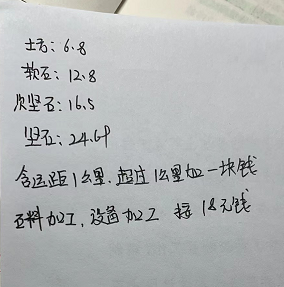 土方：6.8
软石：12.8
次坚石：16.5
坚石：24.64
含运距1公里.超过1公里加一块钱
石料加工，设备加工 按18元钱